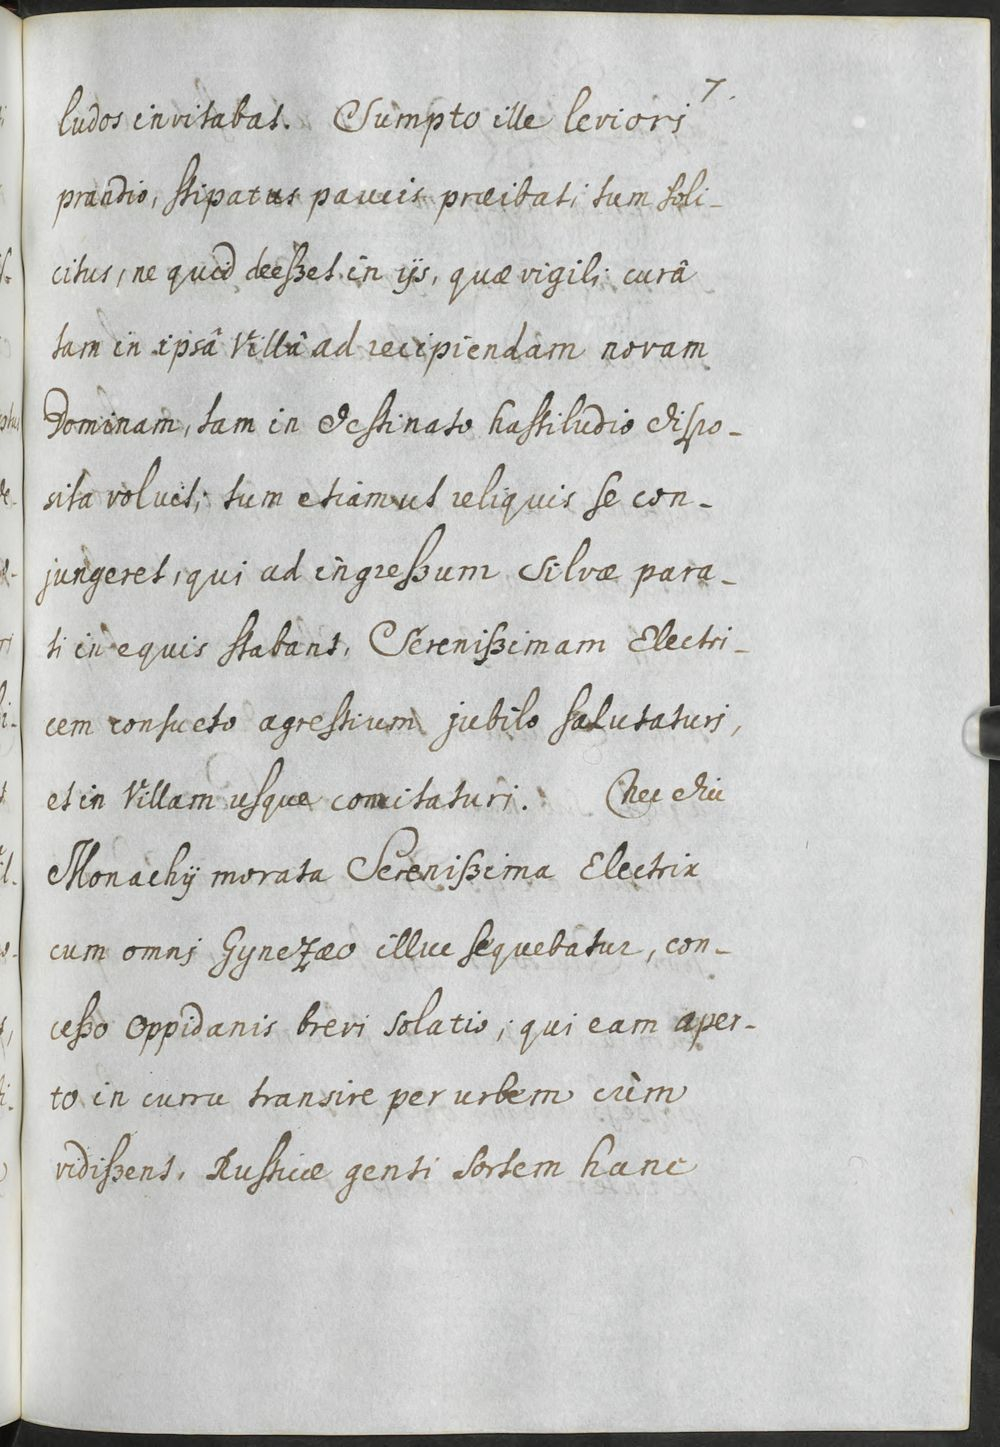 7.
ludos invitabat. Sumpto ille leviori
prandio, stipatus paucis præibat; tum soli-
citus, ne quid deesset in ijs, quæ vigili curâ
tam in ipsâ Villâ ad recipiendam novam
Dominam, tam in destinato hastiludio dispo-
sita voluit; tum etiam ut reliquis se con-
jungeret, qui ad ingressum Silvæ para-
ti in equis stabant, Serenissimam Electri-
cem consueto agrestium jubilo salutaturi,
et in Villam usque comitaturi. Nec diu
Monachij morata Serenissima Electrix
cum omni Gynezæo illuc sequebatur, con-
cesso oppidanis brevi solatio; qui eam aper-
to in curru transire per urbem cùm
vidissent, Rusticæ genti sortem hanc